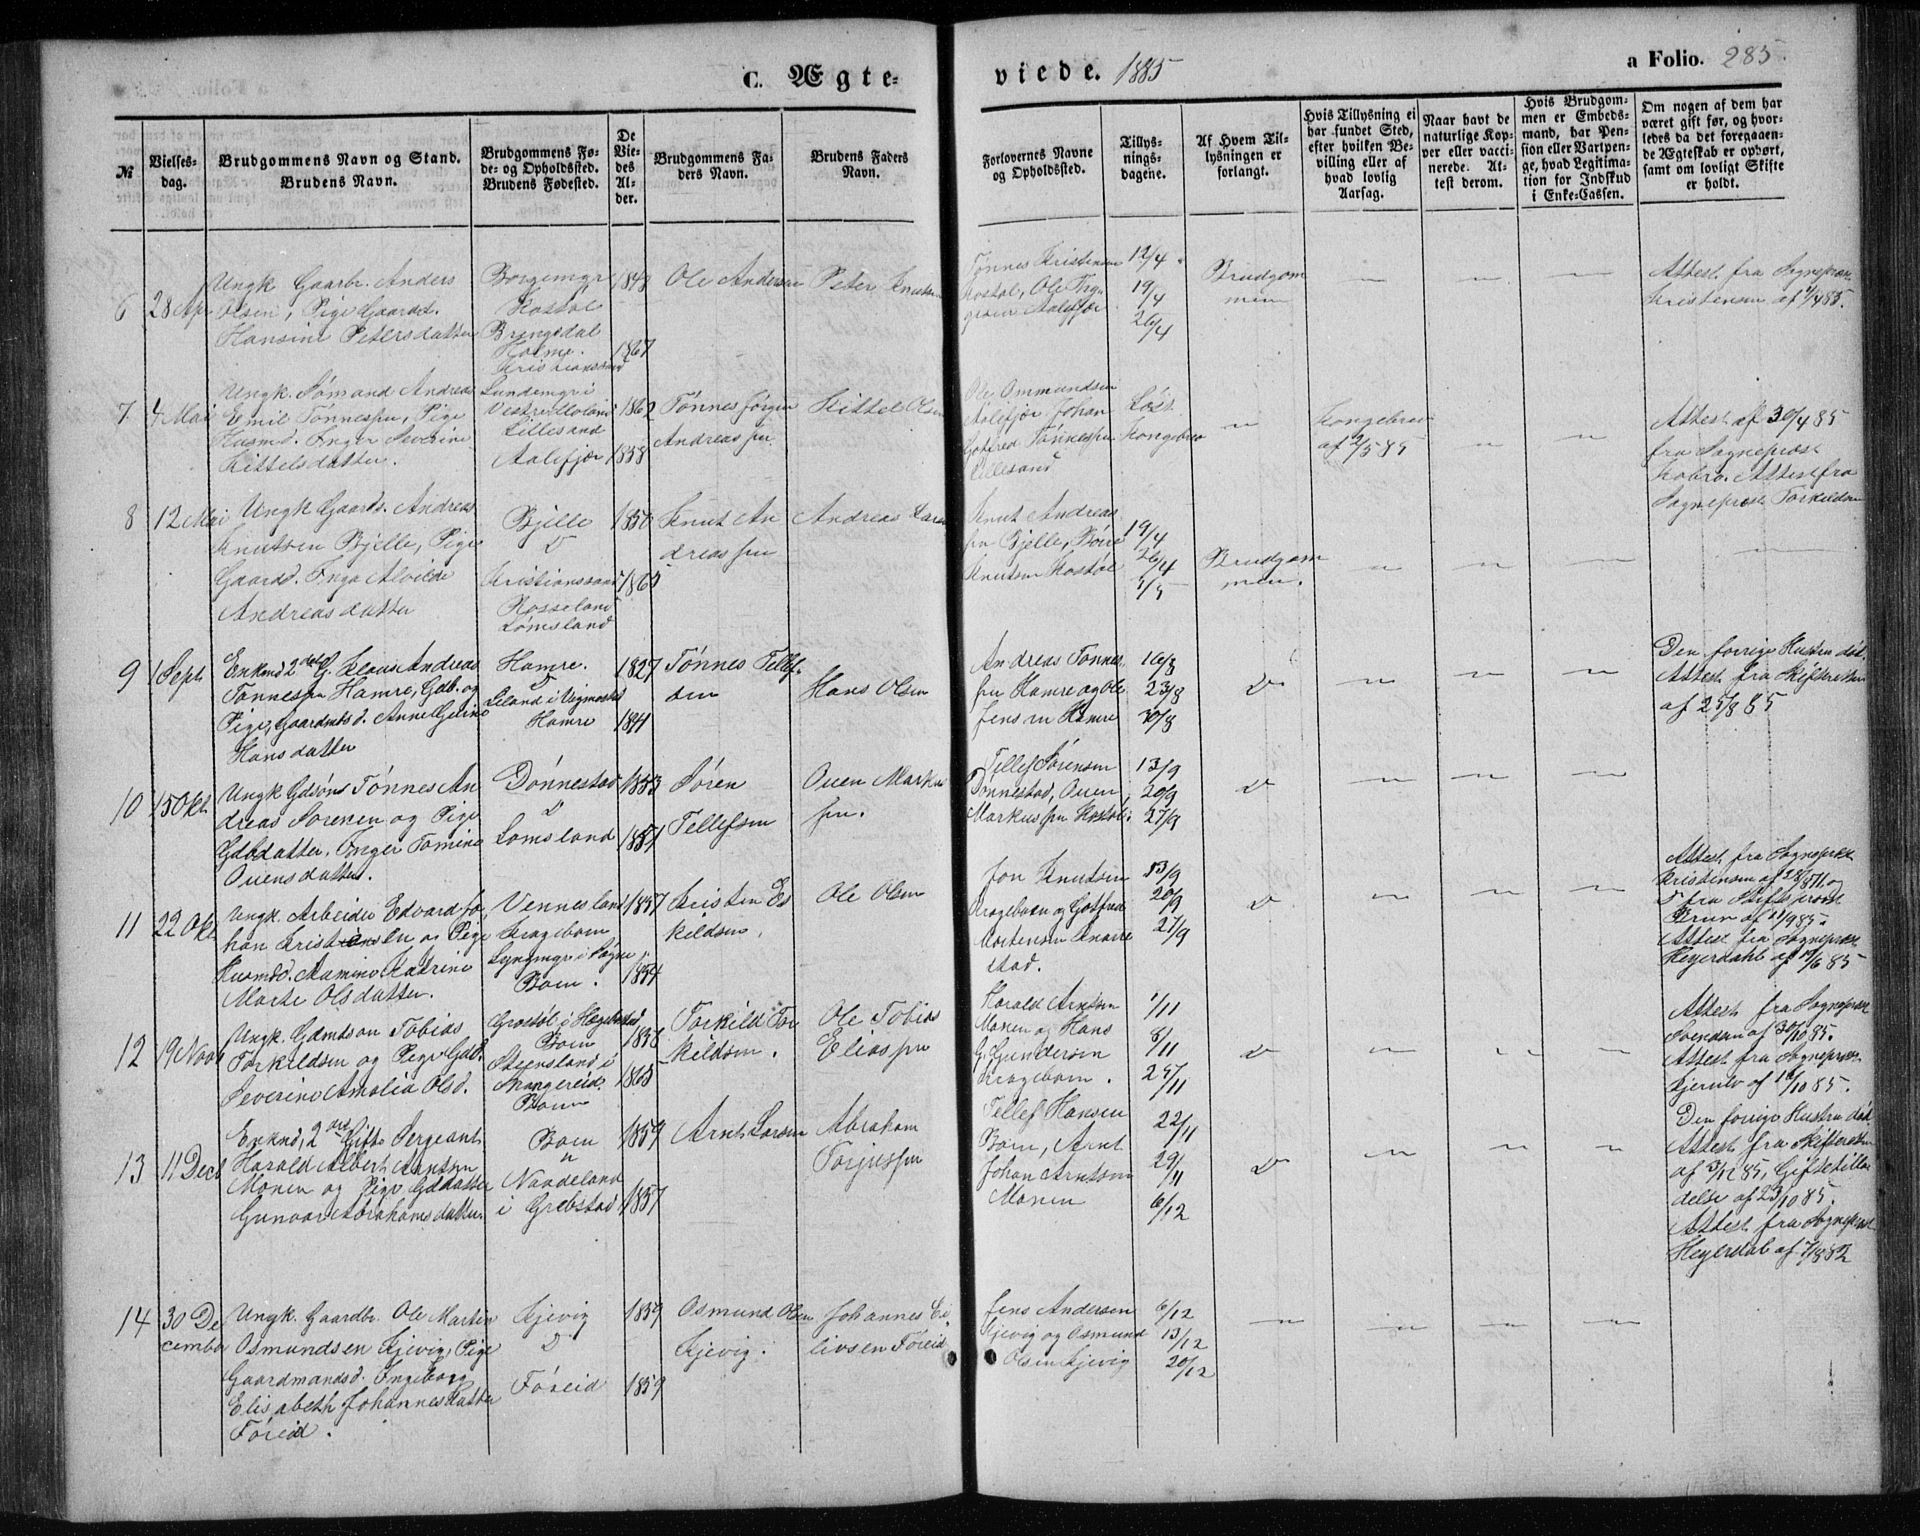 C. Ægte-
viede. 1885
a Folio. 285.
№
Vielses-
dag.
Brudgommens Navn og Stand.
Brudens Navn.
Brudgommens Fø-
de- og Opholdssted.
Brudens Fødested.
De
Vie-
des
Al-
der.
Brudgommens Fa-
ders Navn.
Brudens Faders
Navn.
Forlovernes Navne
og Opholdssted.
Tillys-
nings-
dagene.
Af Hvem Til-
lysningen er
forlangt.
Hvis Tillysning ei
har fundet Sted,
efter hvilken Be-
villing eller af
hvad lovlig
Aarsag.
Naar havt de
naturlige Kop-
per eller vacci-
nerede. At-
test derom.
Hvis Brudgom-
men er Embeds-
mand, har Pen-
sion eller Vartpen-
ge, hvad Legitima-
tion for Indskud
i Enke-Cassen.
Om nogen af dem har
været gift før, og hvor-
ledes da det foregaaen-
de Ægteskab er ophørt,
samt om lovligt Skifte
er holdt.
6
28 Apr
Ungk. Gaardbr. Anders
Olsen, Pige Gaardd.
Hansine Petersdatter
Kostøl
Brengsdal
Holme.
Kristianssand
1848
1867
Ole Andersen
Peter Knutsen
Tønnes Kristensen
Kostøl, Ole
Aalefjær
12/4
19/4
26/4
Brudgom
men
Attest fra Sognepræst
Kristensen af 1/4 85.
7
4 Mai
Ungk. Sømand Andreas
Emil Tønnessen, Pige
Husmd. Inger Severine
Kittelsdatter.
Lundemyr i
Vestre Moland
Lillesand
Aalefjær
1862
1858
Tønnes Jørgen
Andreassen
Kittel Olsen
Ole Ommundsen
Aalefjær Johan
Gotfred Tønnessen
Lillesand
Løst
Kongebrev
Kongebrev
af 2/5 85
Attest af 30/4 85
fra Sognepræst
Kobro. Attest fra
Sognepræst Torkildsen
8
12 Mai
Ungk Gaardb. Andreas
Knutsen Bjelle, Pige
Gaardd. Inga Alvilde
Andreasdatter
Bjelle
Kristianssand
Rosseland
Lømsland
1850
1865
Knut An
dreassen
Andreas Larsen
Knut Andreas
sen Bjelle, Børre
Knutsen Kostøl
19/4
26/4
3/5
Brudgom
men.
9
1 Sept
Enkmd 2den G. Klaus Andreas
Tønnessen Hamre, Gdb. og
Pige, Gaardmds d. Anne Geline
Hansdatter
Hamre.
Leland i Vigmostad
Hamre
1827
1841
Tønnes Tellef
sen
Hans Olsen
Andreas Tønnes
sen Hamre og Ole
Jensen Hamre
16/8
23/8
30/8
Den forrige Hustru død.
Attest fra Skifteretten
af 25/8 85
10
15 Okt
Ungk Gdsøn Tønnes An
dreas Sørensen og Pige
Gdbdatter. Inger Tomine
Ouensdatter.
Dønnestad
Lømsland
1853
1851
Søren
Tellefsen
Ouen Markus
sen.
Tellef Sørensen
Dønnestad, Ouen
Markussen Kostøl
13/9
20/9
27/9
11
22 Okt
Ungk. Arbeider Edvard Jo
han Kristensen og Pige
Husmd. Mamine Katrine
Marte Olsdatter.
Vennesland
Kragebom
Lyngmyr i Søgne
Boen.
1857
1854
Kristen Es
kildsen.
Ole Olsen
Jon Knutsen
Krageboen og Gotfred
Mortensen Knarre
stad.
13/9
20/9
27/9
Attest fra Sognepræst
Kristensen af
fra Stiftsprovst
Brun af 11/9 85.
Attest fra Sognepræst
Heyerdahl af 19/6 85
12
19 Novb
Ungk. Gdmdsøn Tobias
Torkildsen og Pige Gdb.
Severine Amalia Olsd.
Grostøl i Hægebostad
Boen
Steensland i
Spangereid.
Boen
1838
1863
Torkild Tor
kildsen.
Ole Tobias
Eliassen
Harald Arntsen
Monen og Hans
G. Gundersen
Krageboen.
1/11
8/11
Attest fra Sognepræst
Svendsen af 30/10 85.
Attest fra Sognepræst
Gjerulv af 14/10 85.
13
11 Decb
Enkmd, 2den Gifte Sergeant
Harald Albert Arntsen
Monen og Pige Gddatter
Gunvor Abrahamsdatter
Boen
Naadeland
i Grebstad
1859
1857
Arnt Larsen
Abraham
Torjussen
Tellef Hansen
Boen, Arnt
Johan Arntsen
Monen
22/11
29/11
6/12
Den forrige Hustru død
Attest fra Skifteretten
af 3/12 85, Giftetilla
delse af 23/10 85.
Attest fra Sognepræst
Heyerdal af 7/8 82
14
30 De
cember
Ungk. Gaardbr. Ole Martin
Osmundsen Kjevig, Pige
Gaardmandsd. Ingeborg
Elisabeth Johannesdatter
Føreid.
Kjevig
Føreid
1859
1859
Osmund Olsen
Kjevig.
Johannes Ei
livsen Føreid
Jens Andersen
Kjevig og Osmund
Olsen Kjevig
6/12
13/12
20/12